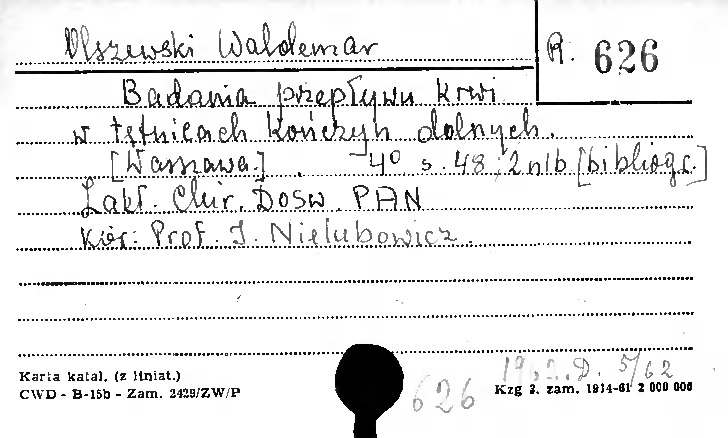 Olszewski Waldemar
R. 626
Badania przepływu krwi
w tętnicach kończyn dolnych.
[Warszawa] . -4° s. 48, 2 nlb. [bibliogr.]
Zakł. Chir. Dośw. PAN
Kier: Prof. J. Nielubowicz.
D. 5/62
Karta katal. (z liniat.)
CWD - B-15b - Zam. 2429/ZW/P
626
Kzg 3. zam. 1914-61 2 000 000